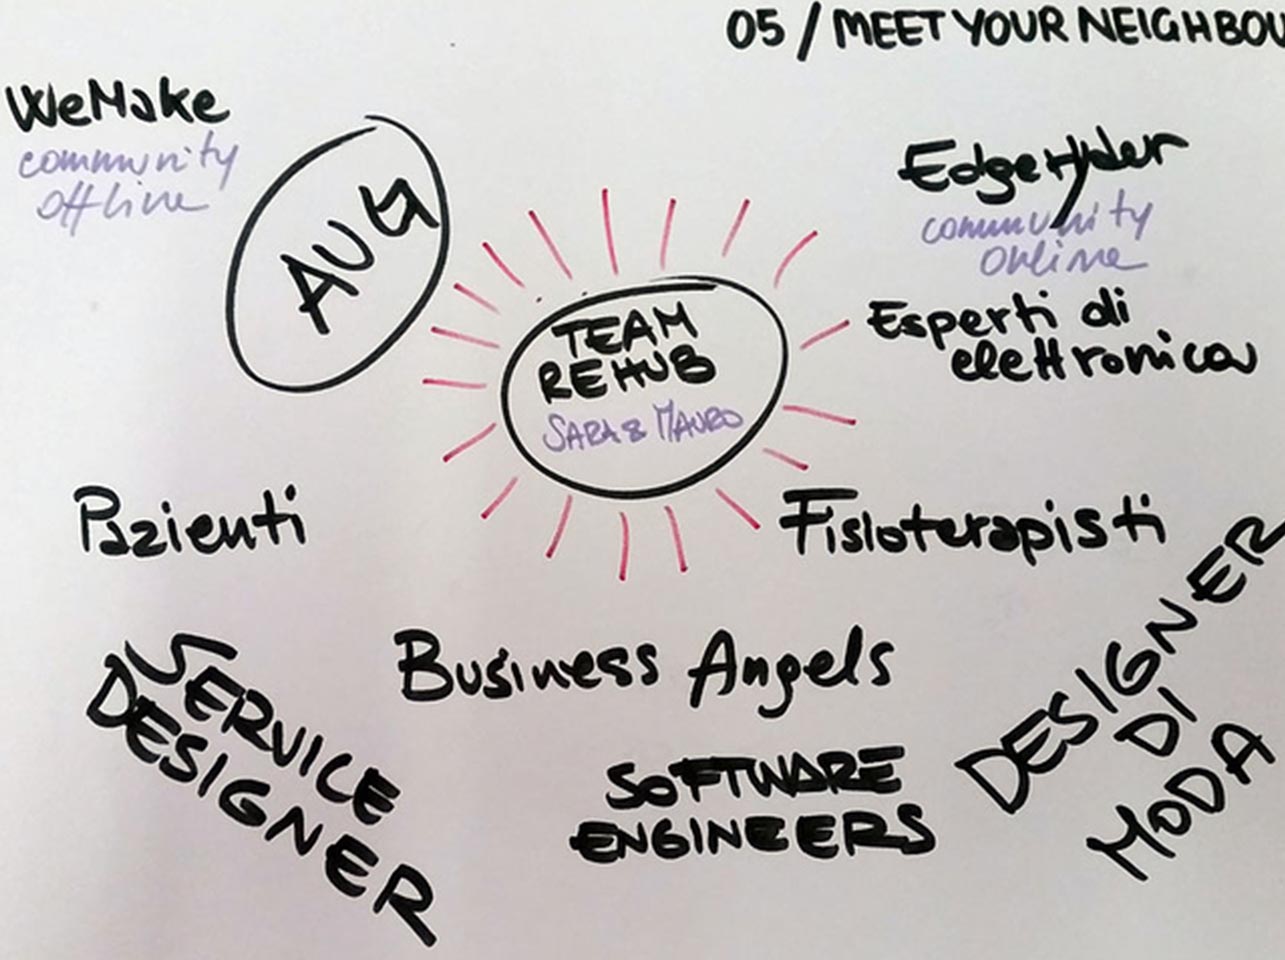 05 / MEET YOUR NEIGHBOU
WeMake
community
offline
AUG
Edgeryder
community
online
Esperti di
elettronica
TEAM
REHUB
SARA & MAURO
Pazienti
Fisioterapisti
Business Angels
SERVICE
DESIGNER
SOFTWARE
ENGINEERS
DESIGNER
DI
MODA